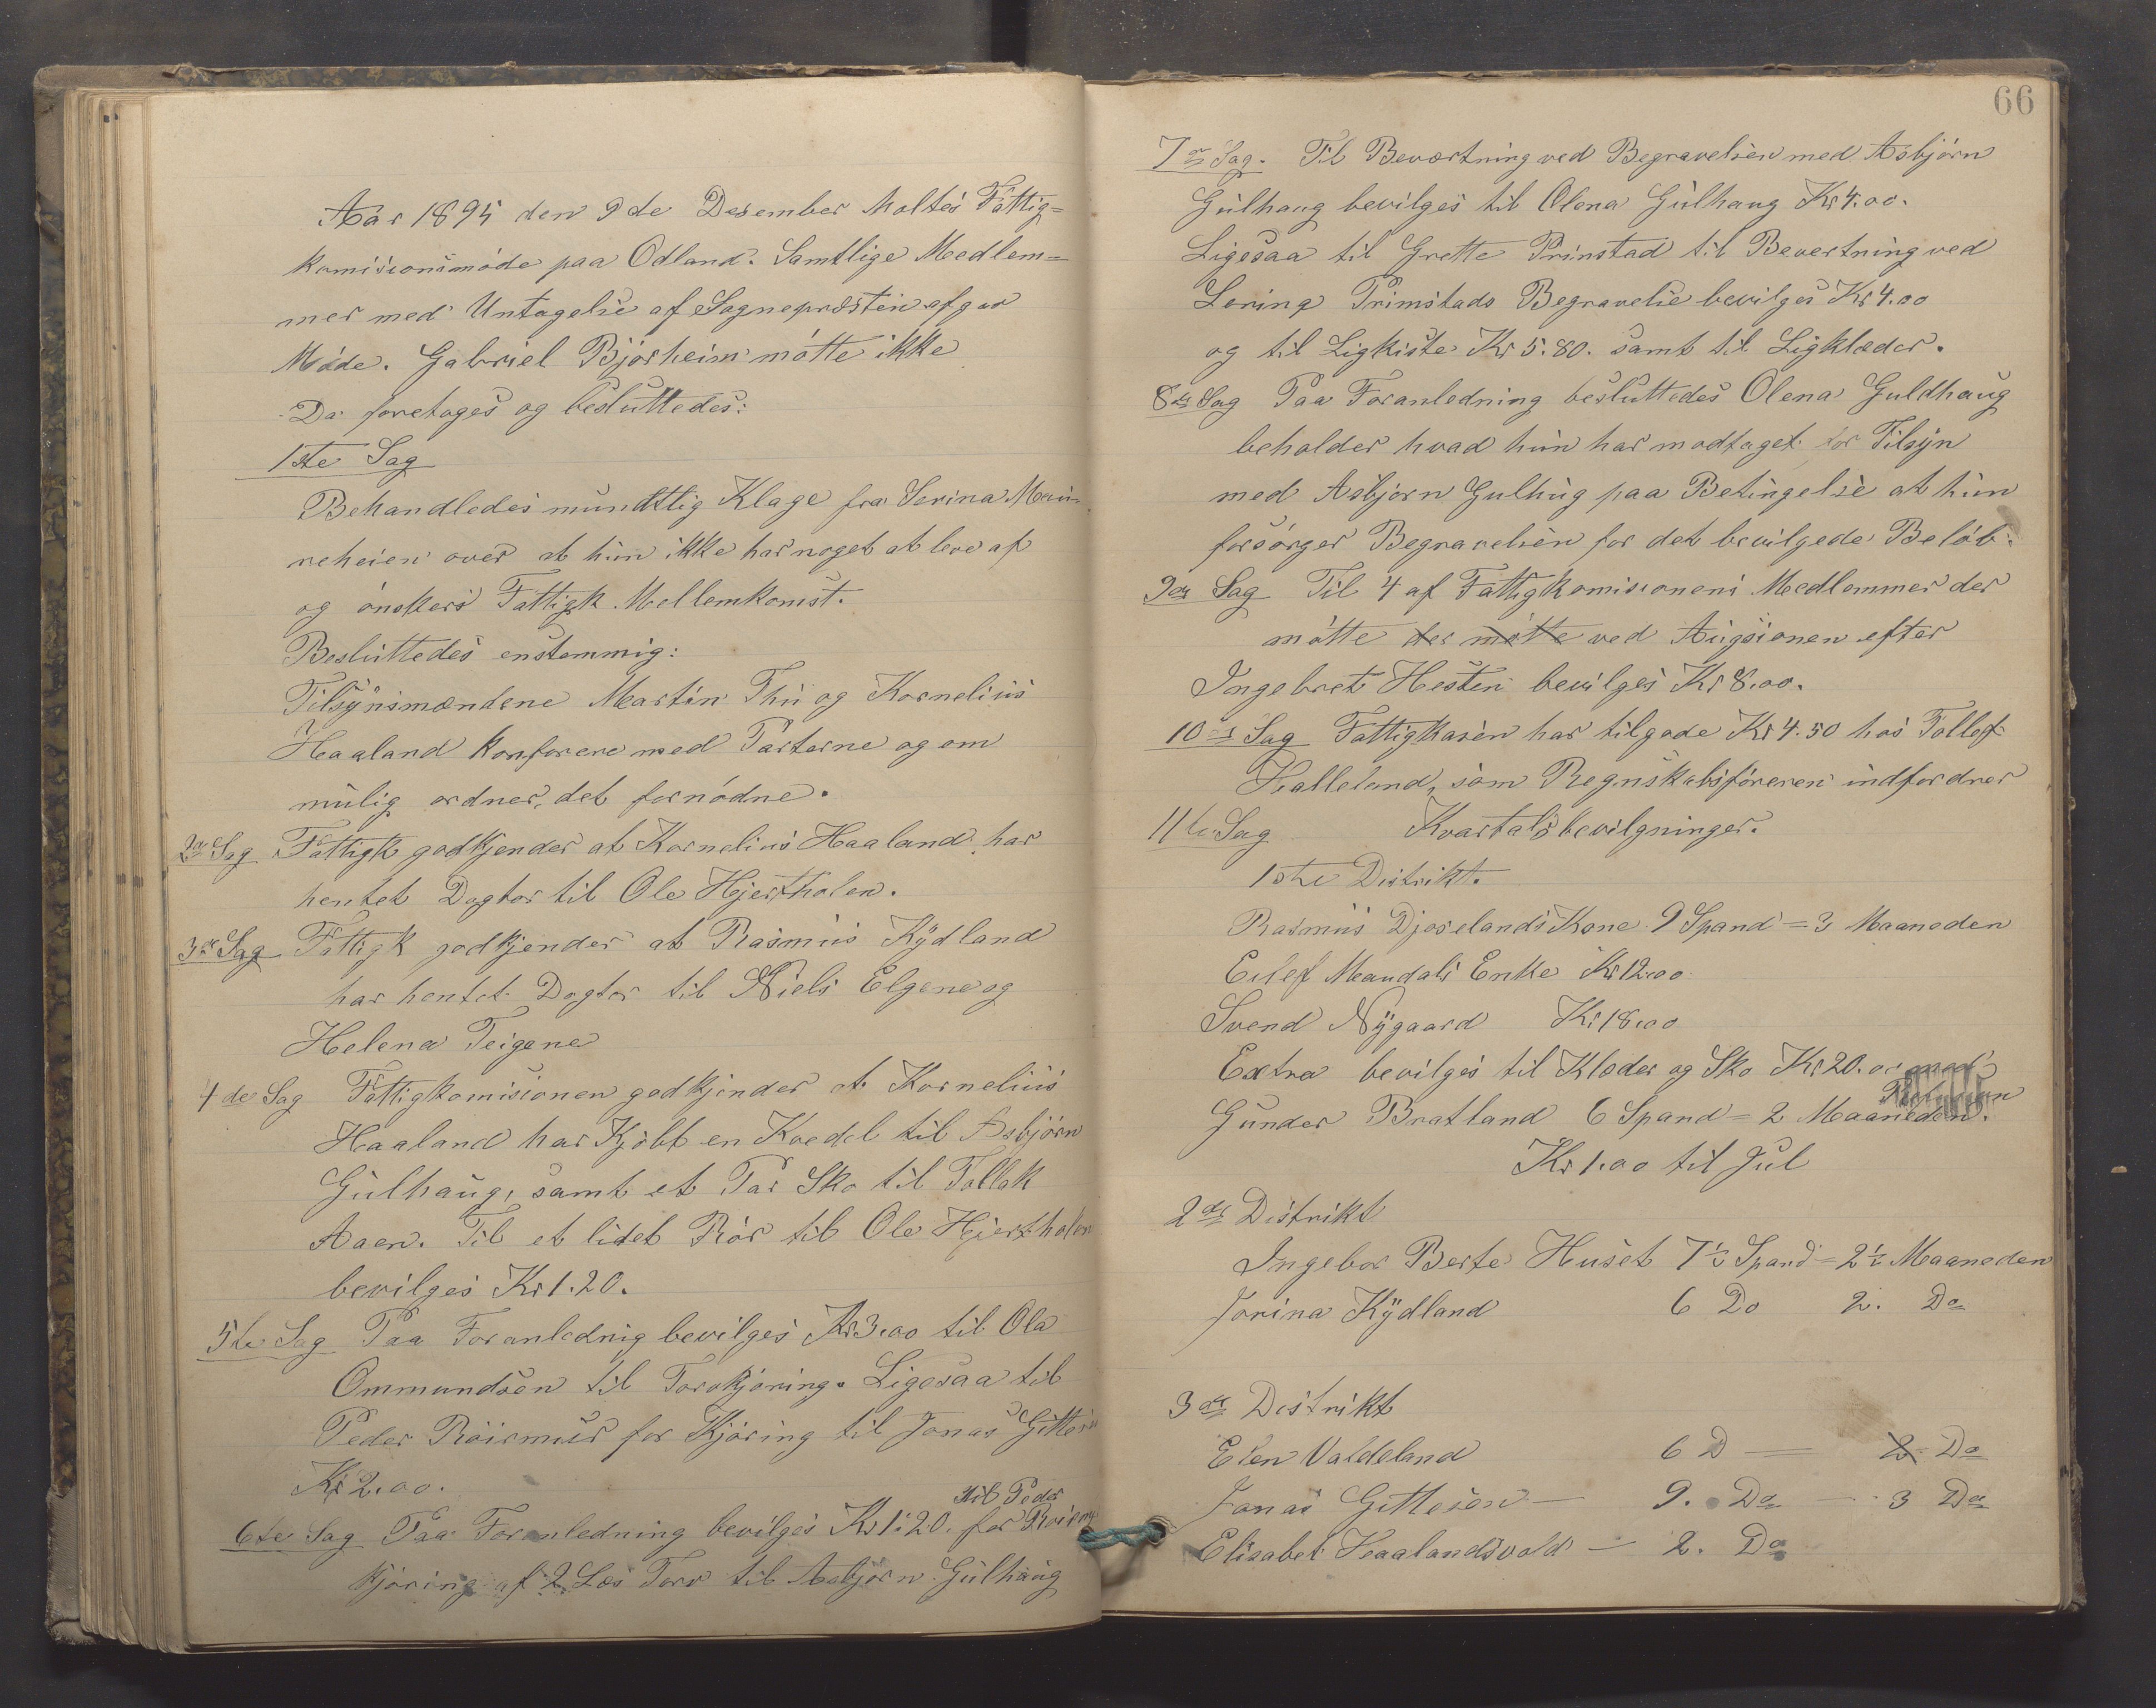 Aar 1895 den 9de Desember holtes Fattig=
komisionsmøde paa Odland. Samtlige Medlem=
mer med Untagelse af Sognepræsten afgav
Møde. Gabriel Bjørheim møtte ikke
Da foretoges og besluttedes:
1ste Sag
Behandledes mundttlig Klage fra Serina
neheien over at hun ikke har noget at leve af
og ønskers Fattigk Mellemkomst.
Besluttedes enstemmig:
Tilsynsmændene Martin Thu og Kornelius
Haaland konforere med Parterne og om
mulig ordner det fornødne.
2den Sag Fattigk godkjender at Kornelius Haaland har
hentet Dogtor til Ole Hjertholen.
3de Sag Fattigk godkjender at Rasmus Kydland
har hentet Dogtor til Niels Elgene og
Helena Teigene
4de Sag Fattigkomisionen godkjender at Kornelius
Haaland har Kjøbt en Kvedel til Asbjørn
Gulhaug, samt et Par Sko til Tollak
Aaen. Til et lidet Rør til Ole Hjertholen
bevilges Kr 1.20.
5te Sag Paa Foranlednig bevilges Kr 3.00 til Ola
Ommundsen til Torvkjøring. Ligesaa til
Peder Røirmur for Kjøring til Jonas
Kr 2.00.
til Peder
6te Sag Paa Foranledning bevilges Kr 1.20. for
kjøring af 2 Læs Torv til Asbjørn Gulhaug
66
7de Sag. Til Beværtning ved Begravelsen med Asbjørn
Gulhaug bevilges til Olena Gulhaug Kr 4.00.
Ligesaa til Grette Primstad til Bevertning ved
Lorina Primstads Begravelse bevilges Kr 4.00
og til Ligkiste Kr 5.80. samt til Ligklæder.
8de Sag Paa Foranledning besluttedes Olena Guldhaug
beholder hvad hun har modtaget for Tilsyn
med Asbjørn Gulhug paa Betingelse at hun
forsørger Begravelsen for det bevilgede Beløb.
9de Sag Til 4 af Fattigkomisionens Medlemmer der
møtte der møtte ved Augsionen efter
Ingebret Hesten bevilges Kr 8.00.
10de Sag Fattigkasen har tilgode Kr 4.50 hos Tollef
Halleland, som Regnskabsføreren indfordrer
11te Sag Kvartalsbevilgninger.
1ste Distrikt.
Rasmus Djoselands Kone 9 Spand = 3 Maaneden
Eilef Maudals Enke Kr 12.00
Svend Nygaard Kr 18.00
Extra bevilges til Klæder og Sko Kr 20.00
Gunder Bratland 6 Spand = 2 Maaneden.
Kr 1.00 til Jul
2det Distrikt
Ingebor Berte Huset 7½ Spand = 2½ Maaneden
Jorina Kydland 6 Do 2. Do
3de Distrikt
Elen Valdeland 6 D — 2 Do
Jonas Gittesen — 9. Do — 3 Do
Elisabet Haalandsvold — 2. Do